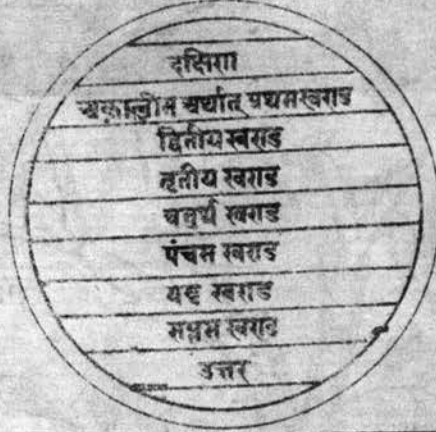 दक्षिण
अकालीन अर्थात् प्रथमखण्ड
द्वितीय खण्ड
तृतीय खण्ड
चतुर्थ खण्ड
पंचम खण्ड
षष्ठ खण्ड
सप्तम खण्ड
उत्तर